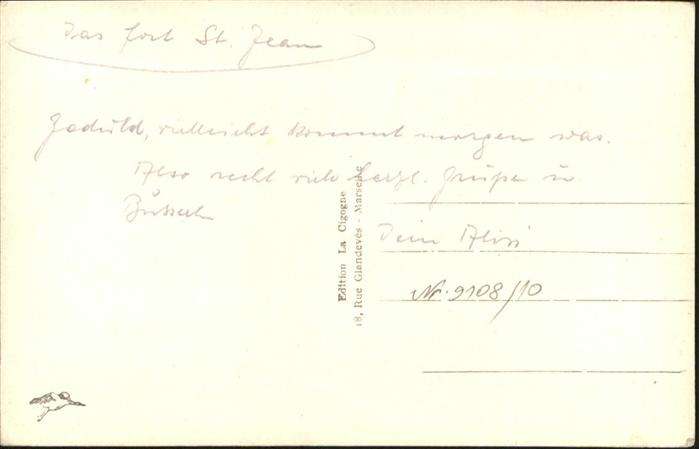 Das Fort St. Jean
Geduld, vielleicht kommt morgen was.
Also recht viele herzl. Grüße u.
Bussерln
Dein Aloisi
Nr. 9108/10
Edition La Cigogne
18, Rue Glandevès - Marseille